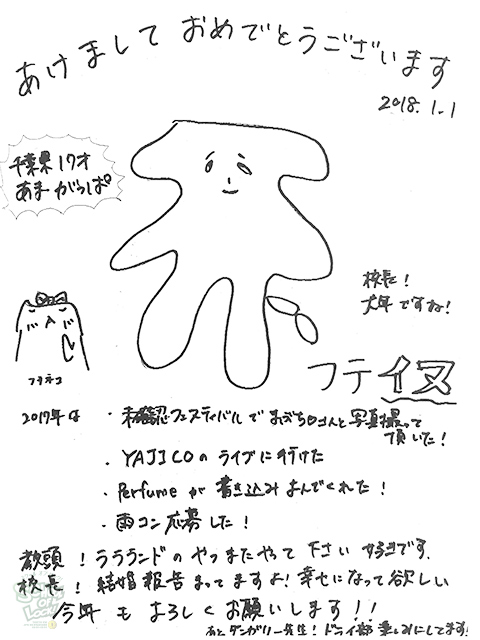 あけましておめでとうございます
2018.1.1
千葉県 17才
あまがっぱ
校長！
犬年ですね！
フテネコ
フテイヌ
2017年は
・未確認フェスティバルで まぶちロコんと写真撮って
頂いた！
・YAJICOのライブに行けた
・Perfumeが書き込みよんでくれた！
・雨コン応募した！
教頭！ララランドのやつまたやって下さい 好きです。
校長！結婚報告まってますよ！幸せになって欲しい
今年もよろしくお願いします！！
あとダンガリー先生！ドライ部楽しみにしてます！